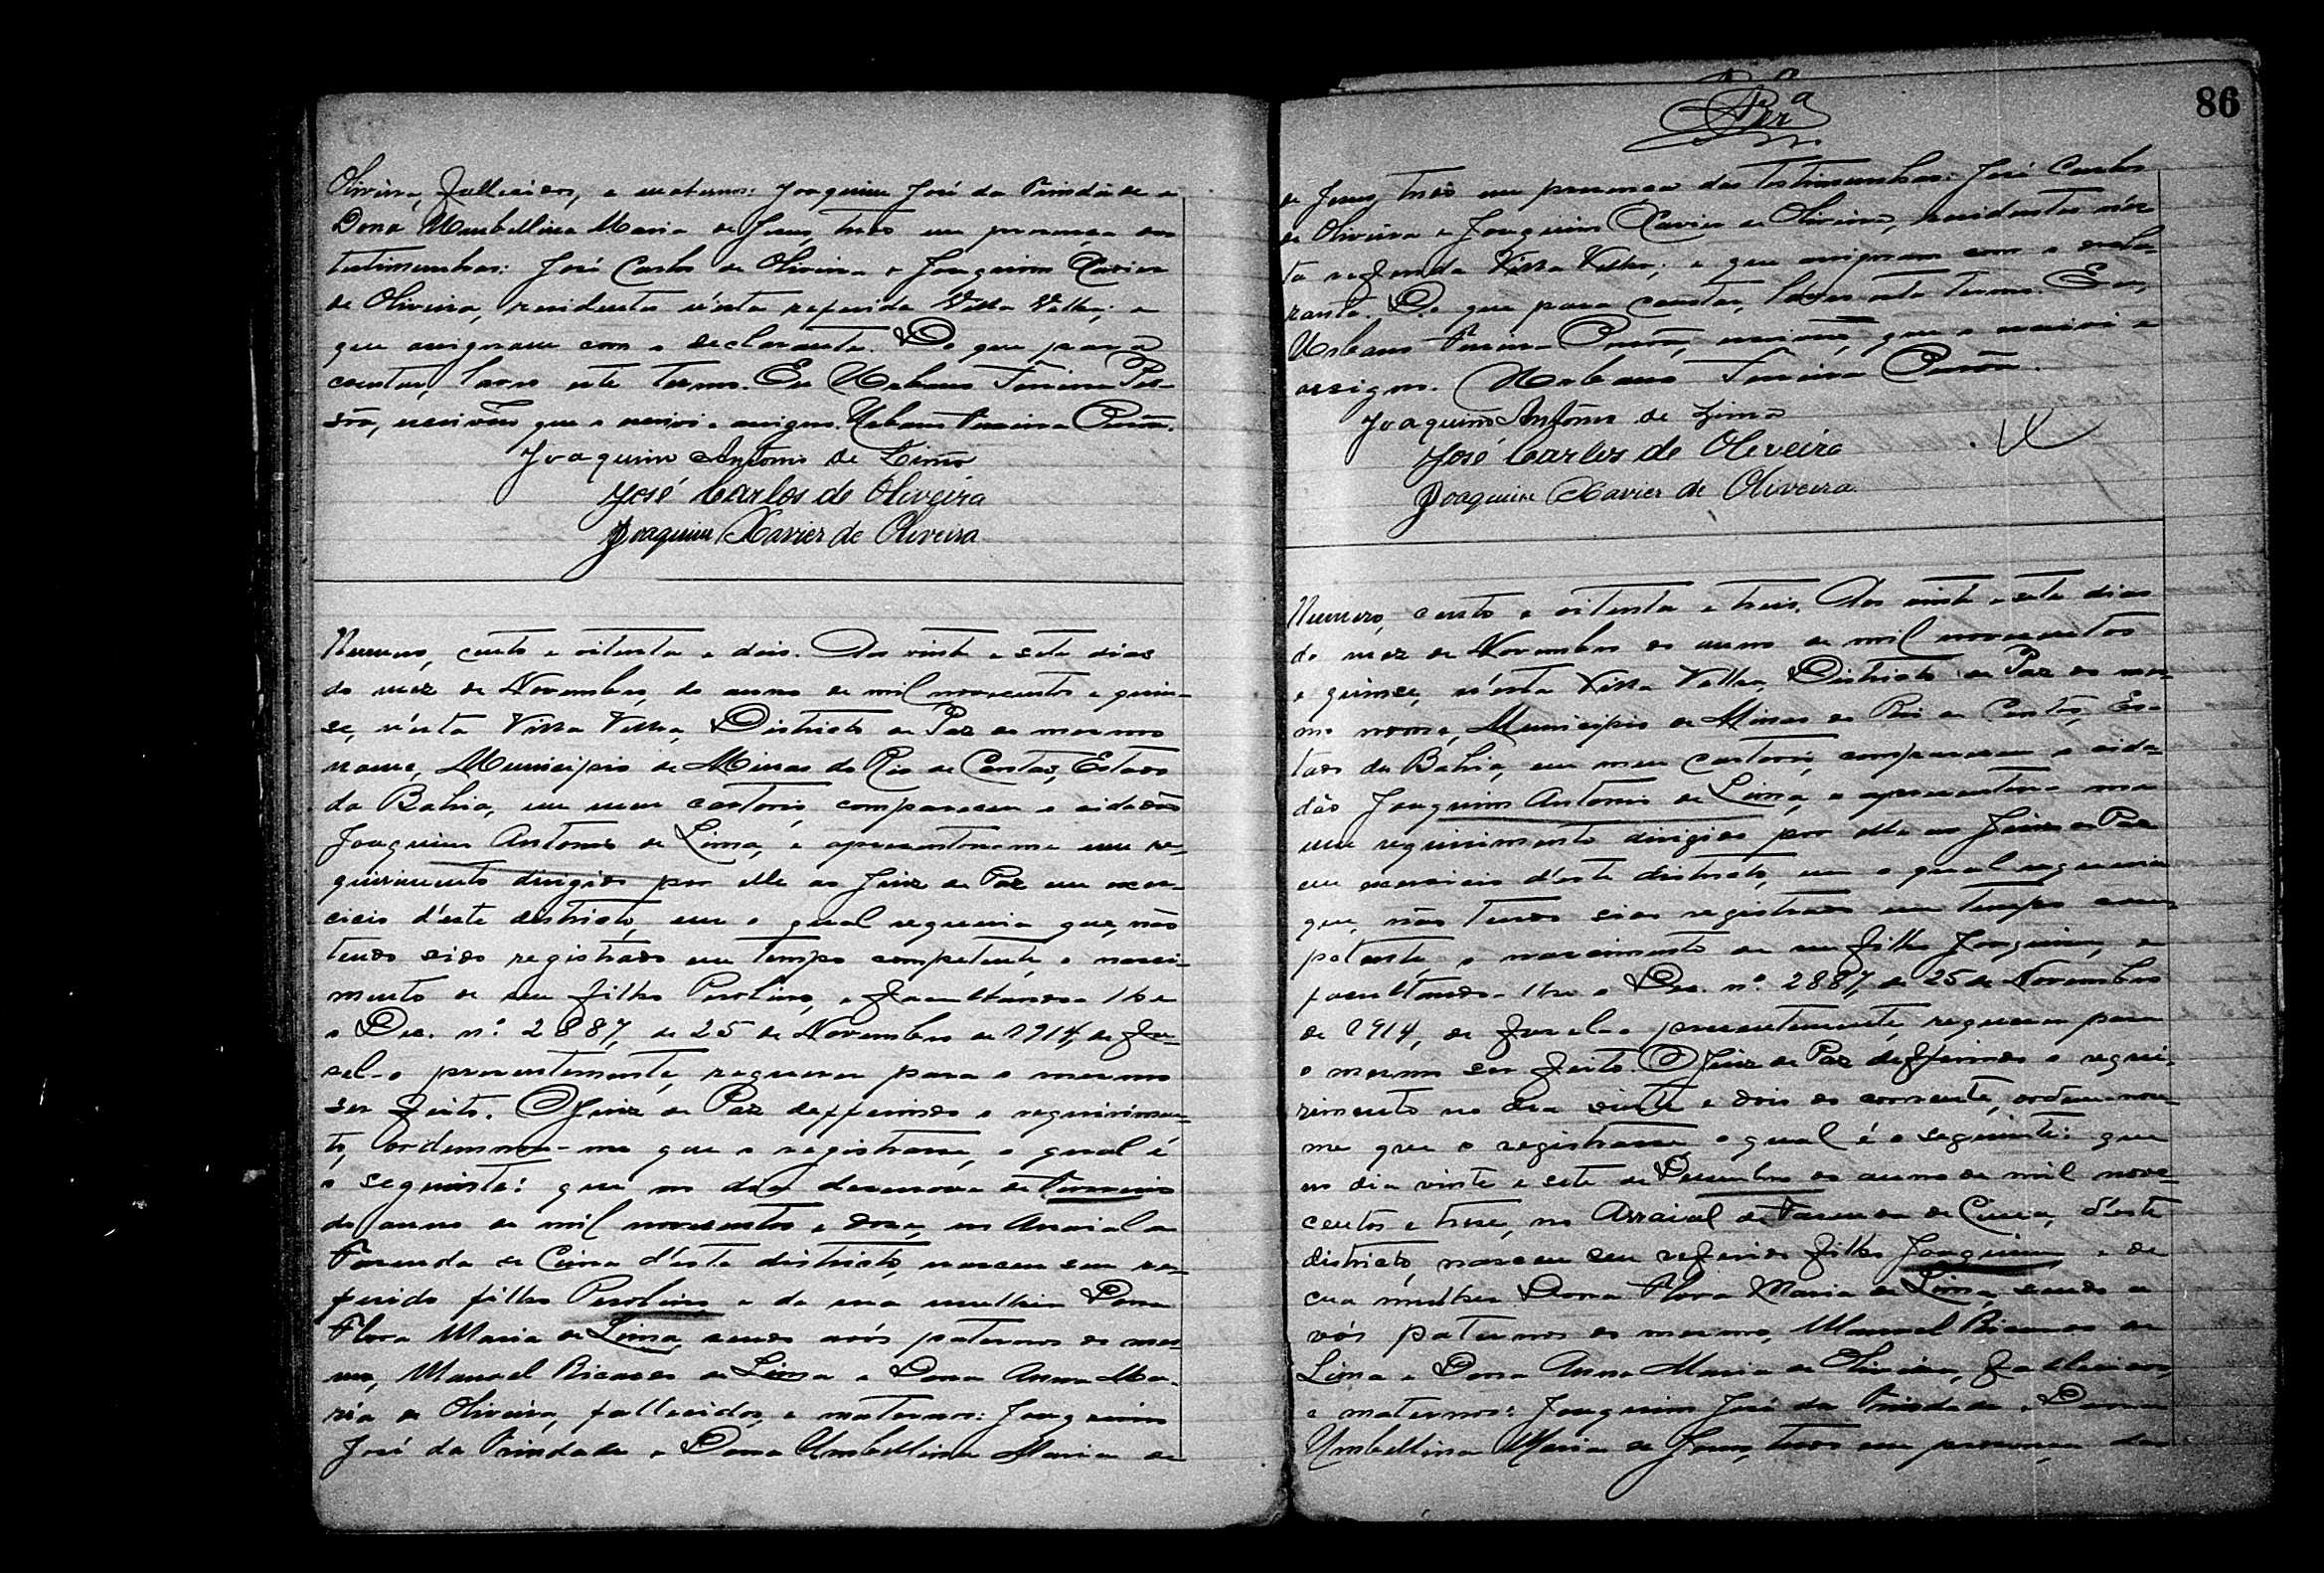 Oliveira, fallecidos, e maternos: Joaquim José da Trindade e
Dona Umbellina Maria de Jesus, tudo em presença das
testimunhas: José Carlos de Oliveira e Joaquim Xavier
de Oliveira, residentes n'esta referida Villa Velha; e
que assignam com o declarante. Do que para
constar, lavro este termo. Eu Urbano Ferreira Pes-
sôa, escrivão que o escrevi e assigno. Urbano Ferreira Pessôa.
Joaquim Antonio de Lima
José Carlos de Oliveira
Joaquim Xavier de Oliveira
Numero, cento e oitenta e dois. Aos vinte e sete dias
do mez de Novembro, do anno de mil novecentos e quin-
se, n'esta Villa Velha, Districto de Paz do mesmo
nome, Municipio de Minas do Rio de Contas, Estado
da Bahia, em meu cartorio, compareceu o cidadão
Joaquim Antonio de Lima, e apresentou-me um re-
quirimento dirigido por elle ao Juiz de Paz em exer-
cicio d'este districto, em o qual requeria que, não
tendo sido registrado em tempo competente, o nasci-
mento de seu filho, e facultando-lhe
o Dec. nº. 2887, de 25 de Novembro de 1914, de fa-
sel-o presentemente, requerer para o mesmo
ser feito. O Juiz de Paz defferindo o requirimen-
to, ordennou-me que o registrasse, o qual é
o seguinte: que no dia desenove de
do anno de mil novecentos e dose, no Arraial de
Fasenda de Cima d'este districto, nasceu seu re-
ferido filho e de sua mulher Dona
Flora Maria de Lima, sendo avós paternos do mes-
mo, Manoel Ricardo de Lima e Dona Anna Ma-
ria de Oliveira, fallecidos, e maternos: Joaquim
José da Trindade e Dona Umbellina Maria de
86
de Jesus, tudo em presença das testimunhas: José Carlos
de Oliveira e Joaquim Xavier de Oliveira, residentes n'es-
ta referida Villa Velha; e que assignam com o decla-
rante. Do que para constar, lavro este termo. Eu,
Urbano Ferreira Pessôa, escrivão, que o escrevi e
assigno. Urbano Ferreira Pessôa.
Joaquim Antonio de Lima
José Carlos de Oliveira
Joaquim Xavier de Oliveira.
Numero, cento e oitenta e treis. Aos vinte e sete dias
do mez de Novembro do anno de mil novecentos
e quinse, n'esta Villa Velha, Districto de Paz do mes-
mo nome, Municipio de Minas do Rio de Contas, Es-
tado da Bahia, em meu cartorio, compareceu o cida-
dão Joaquim Antonio de Lima, e apresentou-me
um requirimento dirigido por elle ao Juiz de Paz
em exercicio d'este districto, em o qual requeria
que, não tendo sido registrado em tempo com-
petente o nascimento de seu filho Joaquim, e
facultando-lhe o Dec. nº 2887, de 25 de Novembro
de 1914, de fasel-o presentemente, requerer para
o mesmo ser feito. O Juiz de Paz defferindo o requi-
rimento no dia vinte e dois do corrente, ordennou-
me que o registrasse, o qual é o seguinte: que
no dia vinte e sete de Desembro do anno de mil nove-
centos e trese, no Arraial de Fasenda de Cima, d'este
districto, nasceu seu referido filho Joaquim e de
sua mulher Dona Flora Maria de Lima, sendo a-
vós paternos do mesmo, Manoel Ricardo de
Lima e Dona Anna Maria de Oliveira, fallecidos,
e maternos: Joaquim José da Trindade e Dona
Umbellina Maria de Jesus, tudo em presença das